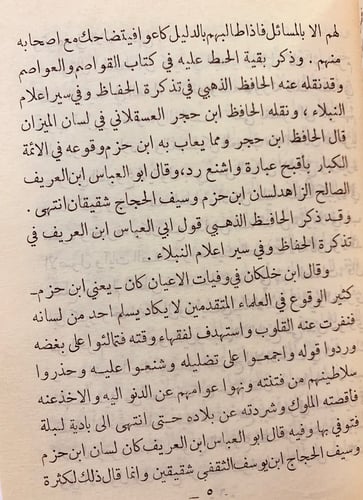 لهم الا بالمسائل فاذا طالبهم بالدليل كاعوا فيتضاحك مع اصحابه
منهم . وذكر بقية الحط عليه في كتاب القواصم والعواصم
وقد نقله عنه الحافظ الذهبي في تذكرة الحفاظ وفي سير اعلام
النبلاء ، ونقله الحافظ ابن حجر العسقلاني في لسان الميزان
قال الحافظ ابن حجر ومما يعاب به ابن حزم وقوعه في الائمة
الكبار باقبح عبارة واشنع رد، وقال ابو العباس ابن العريف
الصالح الزاهد لسان ابن حزم وسيف الحجاج شقيقان انتهى .
وقد ذكر الحافظ الذهبي قول ابي العباس ابن العريف في
تذكرة الحفاظ وفي سير اعلام النبلاء .
وقال ابن خلكان في وفيات الاعيان كان ـ يعني ابن حزم ـ
كثير الوقوع في العلماء المتقدمين لا يكاد يسلم احد من لسانه
فنفرت عنه القلوب واستهدف لفقهاء وقته فتمالئوا على بغضه
وردوا قوله واجمعوا على تضليله وشنعوا عليه وحذروا
سلاطينهم من فتنته ونهوا عوامهم عن الدنو اليه والاخذ عنه
فأقصته الملوك وشردته عن بلاده حتى انتهى الى بادية لبلة
فتوفي بها وفيه قال ابو العباس ابن العريف كان لسان ابن حزم
وسيف الحجاج ابن يوسف الثقفي شقيقين وانما قال ذلك لكثرة
ـ ٥ ـ